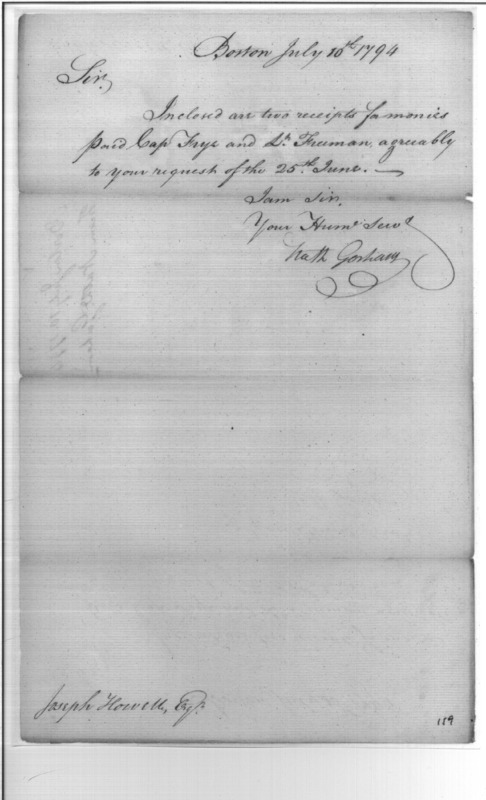 Boston July 10th 1794
Sir,
Inclosed are two receipts for monies
paid Cap Frye and Lt. Freeman, agreeably
to your request of the 25th. June. —
I am Sir,
Your Humle Servt
Nath Gorham
Joseph Howell, Esqr.
119